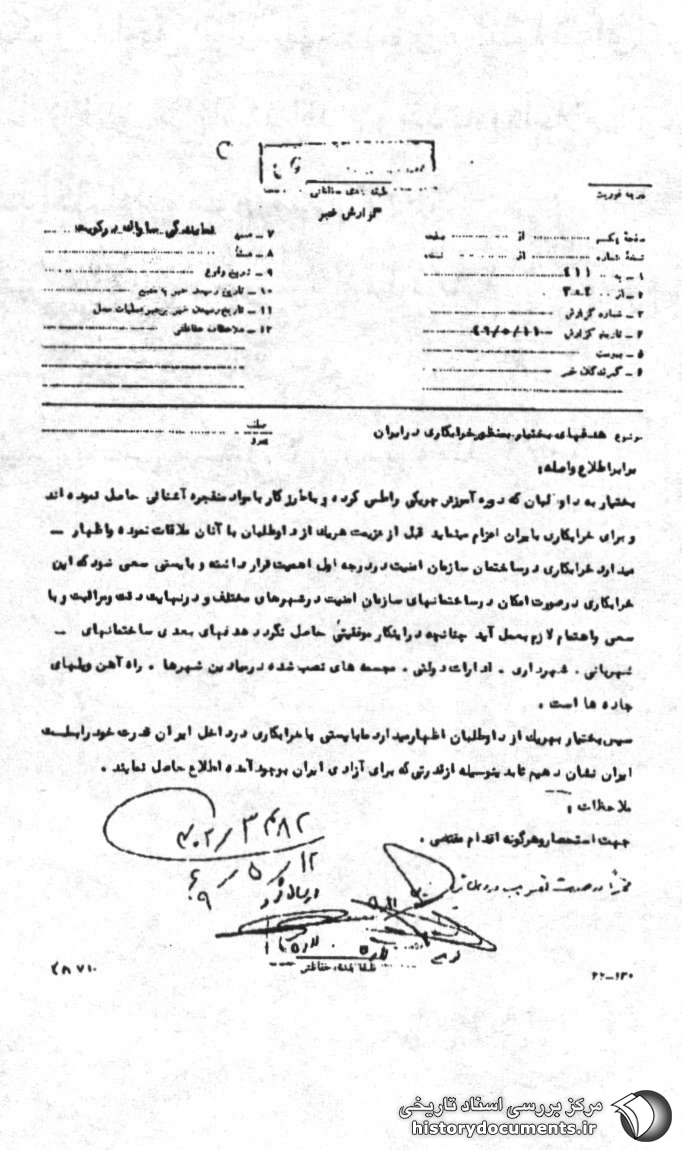 طبقه بندی حفاظتی
گزارش خبر
درجه فوریت
صفحه یکم از صفحه
نسخه شماره از نسخه
۱ - به ۴۱۱
۲ - از
۳ - شماره گزارش
۴ - تاریخ گزارش ۴۹/۵/۱۱
۵ - پیوست
۶ - گیرندگان خبر
۷ - منبع نمایندگی ساواک در کویت
۸ - منشأ
۹ - تاریخ وقوع
۱۰ - تاریخ رسیدن خبر به منبع
۱۱ - تاریخ رسیدن خبر برهبر عملیات محل
۱۲ - ملاحظات حفاظتی
موضوع هدفهای بختیار بمنظور خرابکاری در ایران
برابر اطلاع واصله:
بختیار به داوطلبان که دوره آموزش چریکی را طی کرده و با طرز کار با مواد منفجره آشنائی حاصل نموده اند
و برای خرابکاری بایران اعزام مینماید قبل از عزیمت هریک از داوطلبان با آنان ملاقات نموده و اظهار -
میدارد خرابکاری در ساختمان سازمان امنیت در درجه اول اهمیت قرار داشته و بایستی سعی نمود که این
خرابکاری در صورت امکان در ساختمانهای سازمان امنیت در شهرهای مختلف و در نهایت دقت و مراقبت و با
سعی و اهتمام لازم بعمل آید چنانچه در اینکار موفقیتی حاصل نگردد هدفهای بعدی ساختمانهای -
شهربانی . شهرداری . ادارات دولتی . مجسمه های نصب شده در میادین شهرها . راه آهن و پلهای
جاده ها است .
سپس بختیار بهریک از داوطلبان اظهار میدارد ما بایستی با خرابکاری در داخل ایران قدرت خود را بملت
ایران نشان دهیم تا بدینوسیله از قدرتی که برای آزادی ایران بوجود آمده اطلاع حاصل نمایند .
ملاحظات :
جهت استحضار و هرگونه اقدام مقتضی .
۱۲/۵/۴۹
طبقه بندی حفاظتی
مرکز بررسی اسناد تاریخی
historydocuments.ir